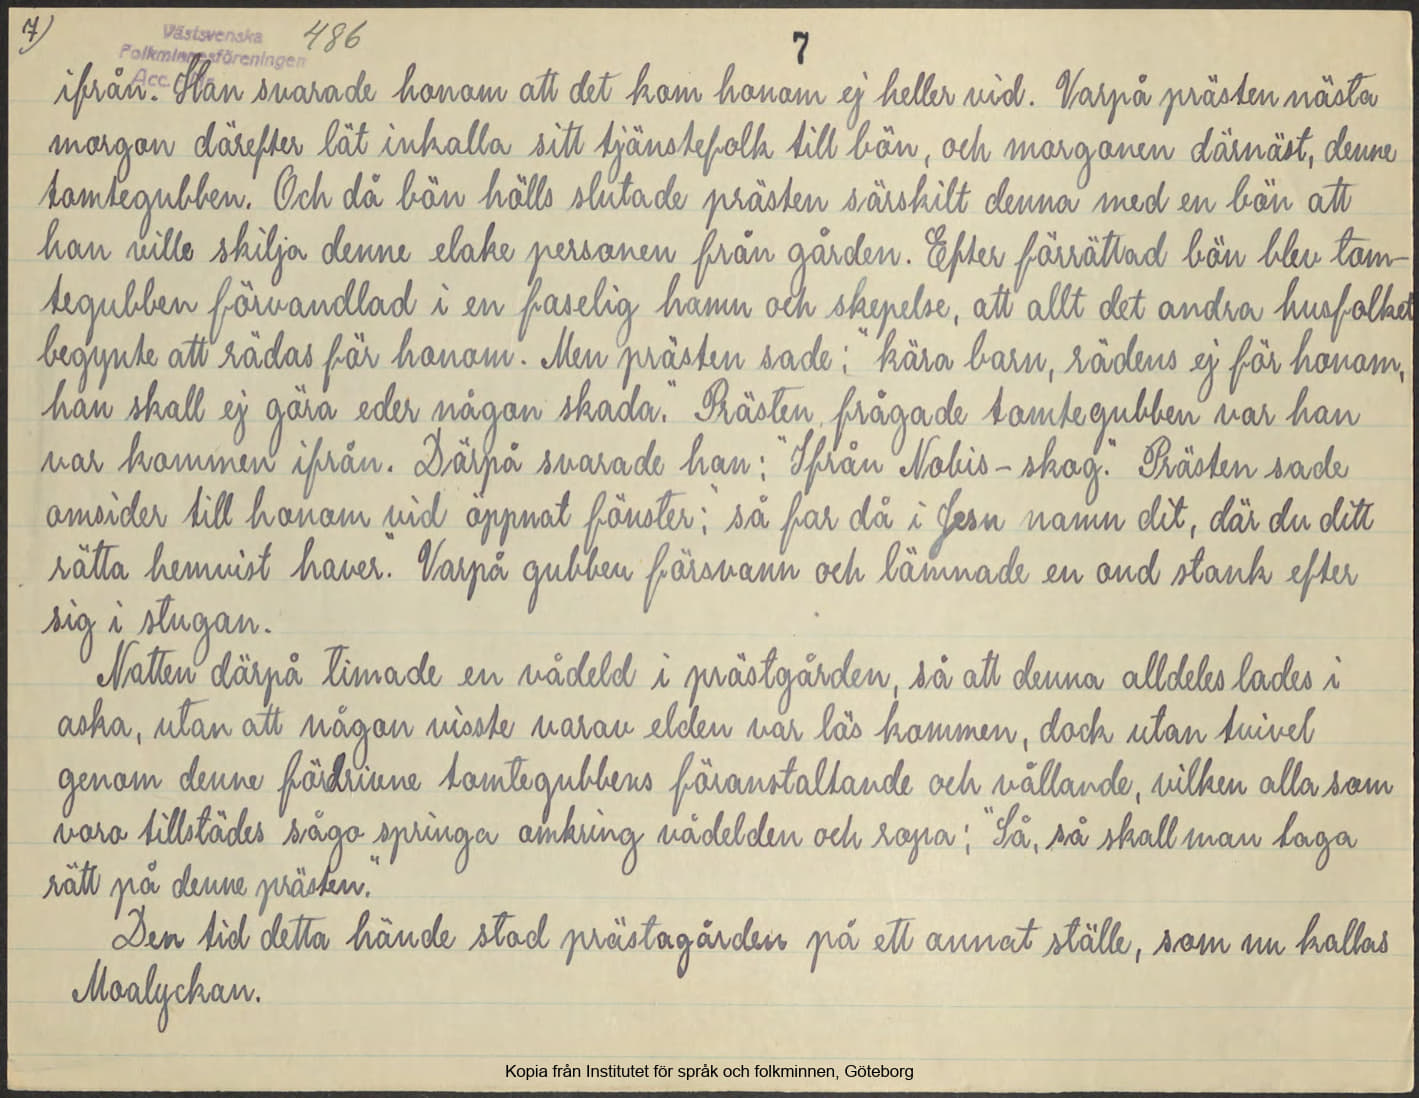 7)
Västsvenska
Folkminnesföreningen
Acc.
486
7
ifrån. Han svarade honom att det kom honom ej heller vid. Varpå prästen nästa
morgon därefter lät inkalla sitt tjänstefolk till bön, och morgonen därnäst, denne
tomtegubben. Och då bön hölls slutade prästen särskilt denna med en bön att
han ville skilja denne elake personen från gården. Efter förrättad bön blev tom-
tegubben förvandlad i en faselig hamn och skepelse, att allt det andra husfolket
begynte att rädas för honom. Men prästen sade: "kära barn, rädens ej för honom,
han skall ej göra eder någon skada." Prästen frågade tomtegubben var han
var kommen ifrån. Därpå svarade han: "Ifrån Nobis-skog." Prästen sade
omsider till honom vid öppnat fönster: "så far då i Jesu namn dit, där du ditt
rätta hemvist haver." Varpå gubben försvann och lämnade en ond stank efter
sig i stugan.
Natten därpå timade en vådeld i prästgården, så att denna alldeles lades i
aska, utan att någon visste varav elden var lös kommen, dock utan tvivel
genom denne fördrivne tomtegubbens föranstaltande och vållande, vilken alla som
voro tillstädes sågo springa omkring vådelden och ropa: "Så, så skall man taga
rätt på denne prästen."
Den tid detta hände stod prästagården på ett annat ställe, som nu kallas
Moalyckan.
Kopia från Institutet för språk och folkminnen, Göteborg